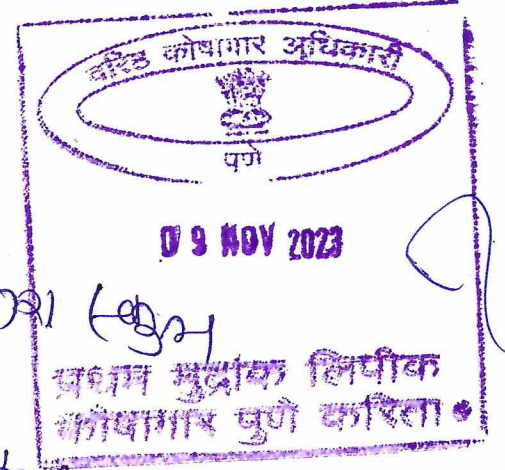 वरिष्ठ कोषागार अधिकारी
पुणे
09 NOV 2023
प्रथम मुद्रांक लिपीक
कोषागार पुणे करिता